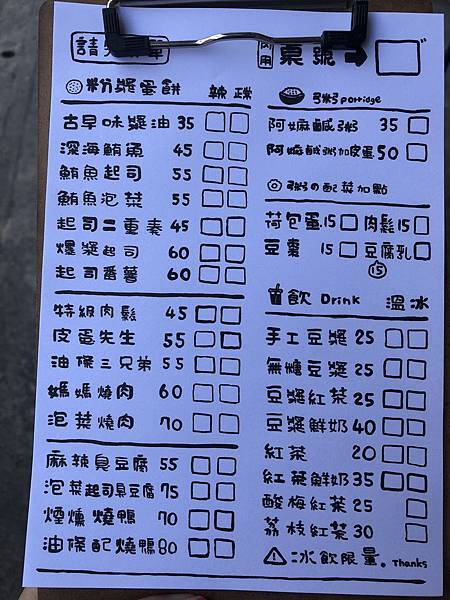 請先 單
內用 桌號
粉漿蛋餅 辣 正常
古早味醬油 35
深海鮪魚 45
鮪魚起司 55
鮪魚泡菜 55
起司二重奏 45
爆漿起司 60
起司番薯 60
特級肉鬆 45
皮蛋先生 55
油條三兄弟 55
媽媽燒肉 60
泡菜燒肉 70
麻辣臭豆腐 55
泡菜起司臭豆腐 75
煙燻燒鴨 70
油條配燒鴨 80
粥 porridge
阿嬤鹹粥 35
阿嬤鹹粥加皮蛋 50
粥の配菜加點
荷包蛋 15 肉鬆 15
豆棗 15 豆腐乳
15
飲 Drink 溫 冰
手工豆漿 25
無糖豆漿 25
豆漿紅茶 25
豆漿鮮奶 40
紅茶 20
紅茶鮮奶 35
酸梅紅茶 25
荔枝紅茶 30
冰飲限量。Thanks